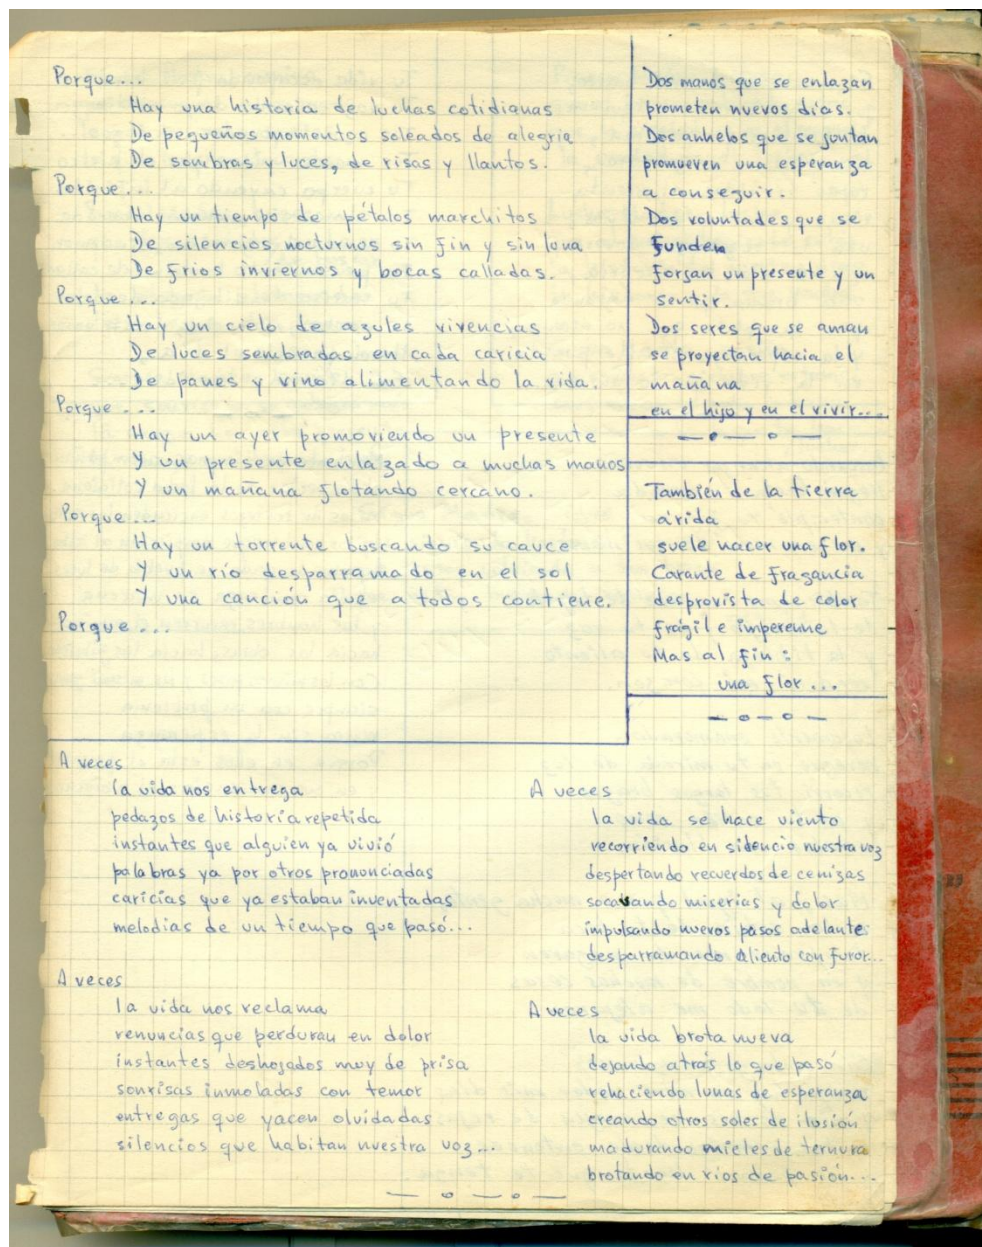 Porque...
Hay una historia de luchas cotidianas
De pequeños momentos soleados de alegria
De sombras y luces, de risas y llantos.
Porque...
Hay un tiempo de pétalos marchitos
De silencios nocturnos sin fin y sin luna
De frios inviernos y bocas calladas.
Porque...
Hay un cielo de azules vivencias
De luces sembradas en cada caricia
De panes y vino alimentando la vida.
Porque...
Hay un ayer promoviendo un presente
Y un presente enlazado a muchas manos
Y un mañana flotando cercano.
Porque...
Hay un torrente buscando su cauce
Y un río desparramado en el sol
Y una canción que a todos contiene.
Porque...
Dos manos que se enlazan
prometen nuevos días.
Dos anhelos que se juntan
promueven una esperanza
a conseguir.
Dos voluntades que se
funden
forjan un presente y un
sentir.
Dos seres que se aman
se proyectan hacia el
mañana
en el hijo y en el vivir...
También de la tierra
árida
suele nacer una flor.
Carante de fragancia
desprovista de color
frágil e imperenne
Mas al fin:
una flor...
A veces
la vida nos entrega
pedazos de historia repetida
instantes que alguien ya vivió
palabras ya por otros pronunciadas
caricias que ya estaban inventadas
melodias de un tiempo que pasó...
A veces
la vida nos reclama
renuncias que perduran en dolor
instantes deshojados muy de prisa
sonrisas inmoladas con temor
entregas que yacen olvidadas
silencios que habitan nuestra voz...
A veces
la vida se hace viento
recorriendo en silencio nuestra voz
despertando recuerdos de cenizas
socavando miserias y dolor
impulsando nuevos pasos adelante
desparramando aliento con furor...
A veces
la vida brota nueva
dejando atrás lo que pasó
rehaciendo lunas de esperanza
creando otros soles de ilusión
madurando mieles de ternura
brotando en ríos de pasión...